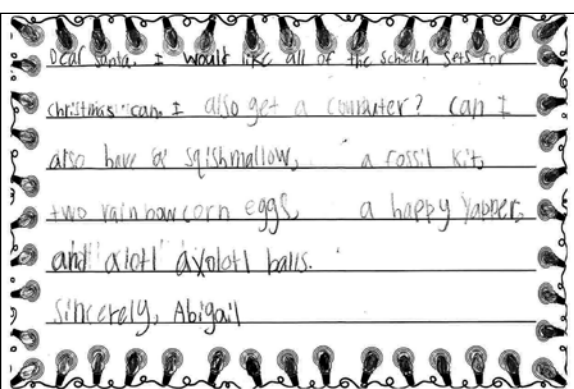 Dear Santa, I would like all of the schelch sets for
christmas can I also get a computer? can I
also have a sqishmallow, a fossil kit,
two rainbowcorn eggs, a happy Yapper,
and alotl axolotl balls.
Sincerely, Abigail